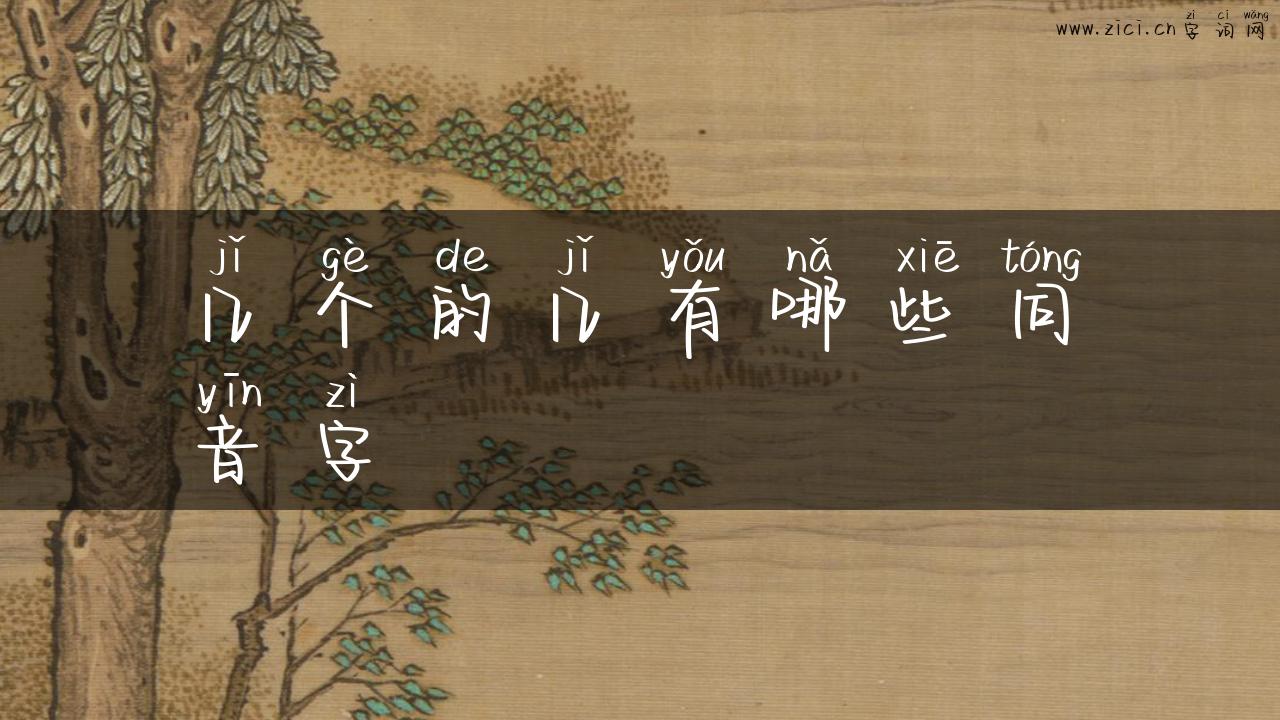 zì cí wǎng
www.zici.cn 字词网
jǐ gè de jǐ yǒu nǎ xiē tóng
几个的几有哪些同
yīn zì
音字